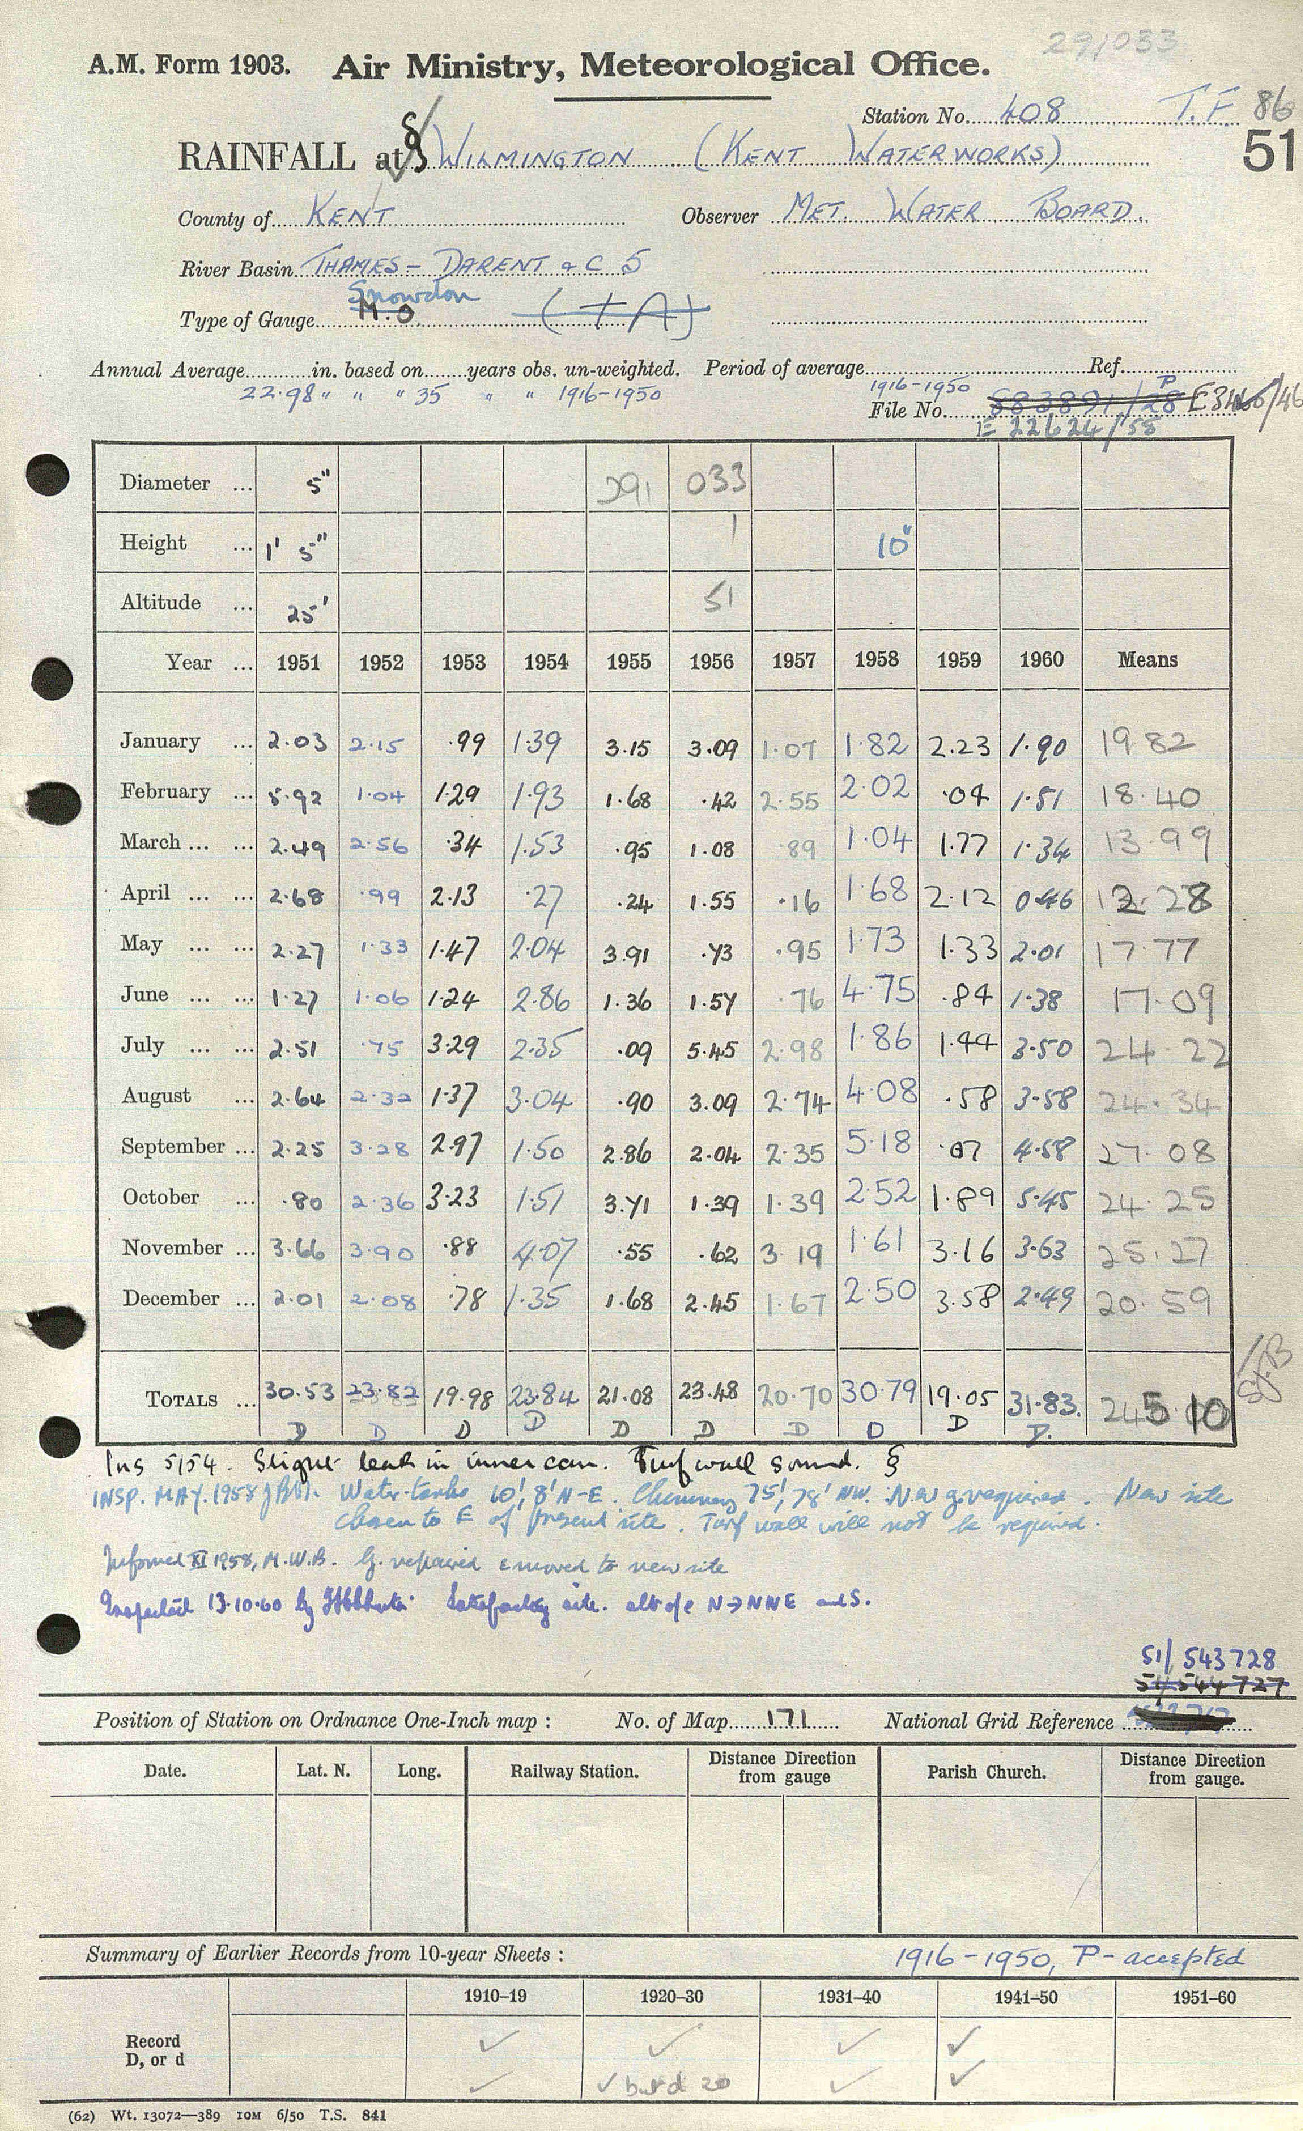 291033
A.M. Form 1903. Air Ministry, Meteorological Office.
Station No. 408 T.F. 86
RAINFALL at § WILMINGTON (KENT WATERWORKS) 51
County of KENT Observer MET. WATER BOARD
River Basin THAMES - DARENT & C 5
Snowdon
Type of Gauge M.O. (TA)
Annual Average in. based on years obs. un-weighted. Period of average Ref.
22.98 " " " 35 " " 1916-1950 1916-1950 P
File No. 883891/28 E3466/46
E 22624/58
Diameter ... 5" 291 033
Height ... 1' 5" 1 10"
Altitude ... 25' 51
Year ... 1951 1952 1953 1954 1955 1956 1957 1958 1959 1960 Means
January ... 2.03 2.15 .99 1.39 3.15 3.09 1.07 1.82 2.23 1.90 19 82
February ... 5.92 1.04 1.29 1.93 1.68 .42 2.55 2.02 .04 1.51 18.40
March ... ... 2.49 2.56 .34 1.53 .95 1.08 89 1.04 1.77 1.34 13.99
April ... ... 2.68 .99 2.13 .27 .24 1.55 .16 1.68 2.12 0.46 12.28
May ... ... 2.27 1.33 1.47 2.04 3.91 .73 .95 1.73 1.33 2.01 17.77
June ... ... 1.27 1.06 1.24 2.86 1.36 1.57 .76 4.75 .84 1.38 17.09
July ... ... 2.51 .75 3.29 2.35 .09 5.45 2.98 1.86 1.44 3.50 24.22
August ... 2.64 2.32 1.37 3.04 .90 3.09 2.74 4.08 .58 3.58 24.34
September ... 2.25 3.28 2.97 1.50 2.86 2.04 2.35 5.18 .07 4.58 27.08
October ... .80 2.36 3.23 1.51 3.71 1.39 1.39 2.52 1.89 5.45 24.25
November ... 3.66 3.90 .88 4.07 .55 .62 3 19 1.61 3.16 3.63 25.27
December ... 2.01 2.08 .78 1.35 1.68 2.45 1.67 2.50 3.58 2.49 20.59
TOTALS ... 30.53 23.82 19.98 23.84 21.08 23.48 20.70 30.79 19.05 31.83. 245 10
D D D D D D D D D D.
Ins 5/54. Slight leak in inner can. Turf wall sound. §
INSP. MAY. 1958 Water-tanks 10', 8' N-E. Chimney 75', 78' NW. New g. required. New site
chosen to E of present site. Turf wall will not be required.
Informed XI 1958, M.W.B. G. repaired & moved to new site
Inspected 13.10.60 by Satisfactory site. N→NNE and S.
51/543728
51/544727
Position of Station on Ordnance One-Inch map : No. of Map 171 National Grid Reference
Date. Lat. N. Long. Railway Station. Distance Direction from gauge Parish Church. Distance Direction from gauge.
Summary of Earlier Records from 10-year Sheets : 1916-1950, P- accepted
1910–19 1920–30 1931–40 1941–50 1951–60
Record ✓ ✓ ✓ ✓
D, or d ✓ ✓ but d 20 ✓ ✓
(62) Wt. 13072—389 10M 6/50 T.S. 841